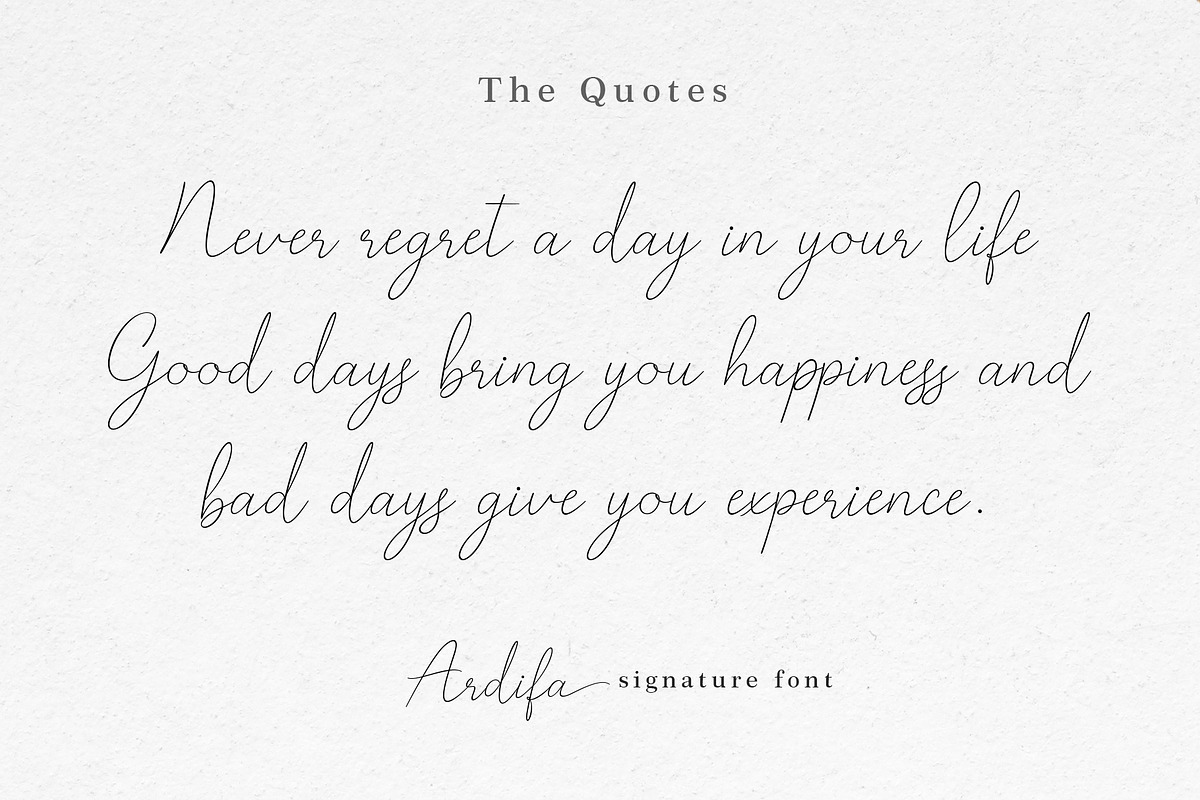 The Quotes
Never regret a day in your life
Good days bring you happiness and
bad days give you experience.
Ardifa signature font